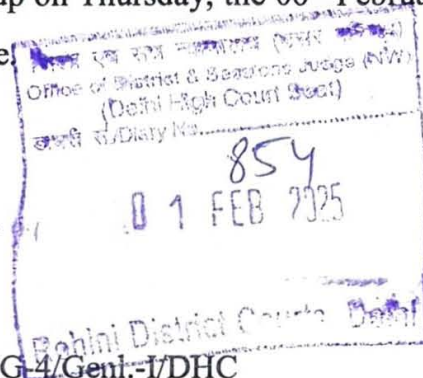 up on Thursday, the 06 Februa
e.
Office of District & Sessions Judge (NW)
(Delhi High Court Seat)
डायरी सं./Diary No.
854
01 FEB 2025
Rohini District Courts, Delhi
G-4/Genl.-I/DHC